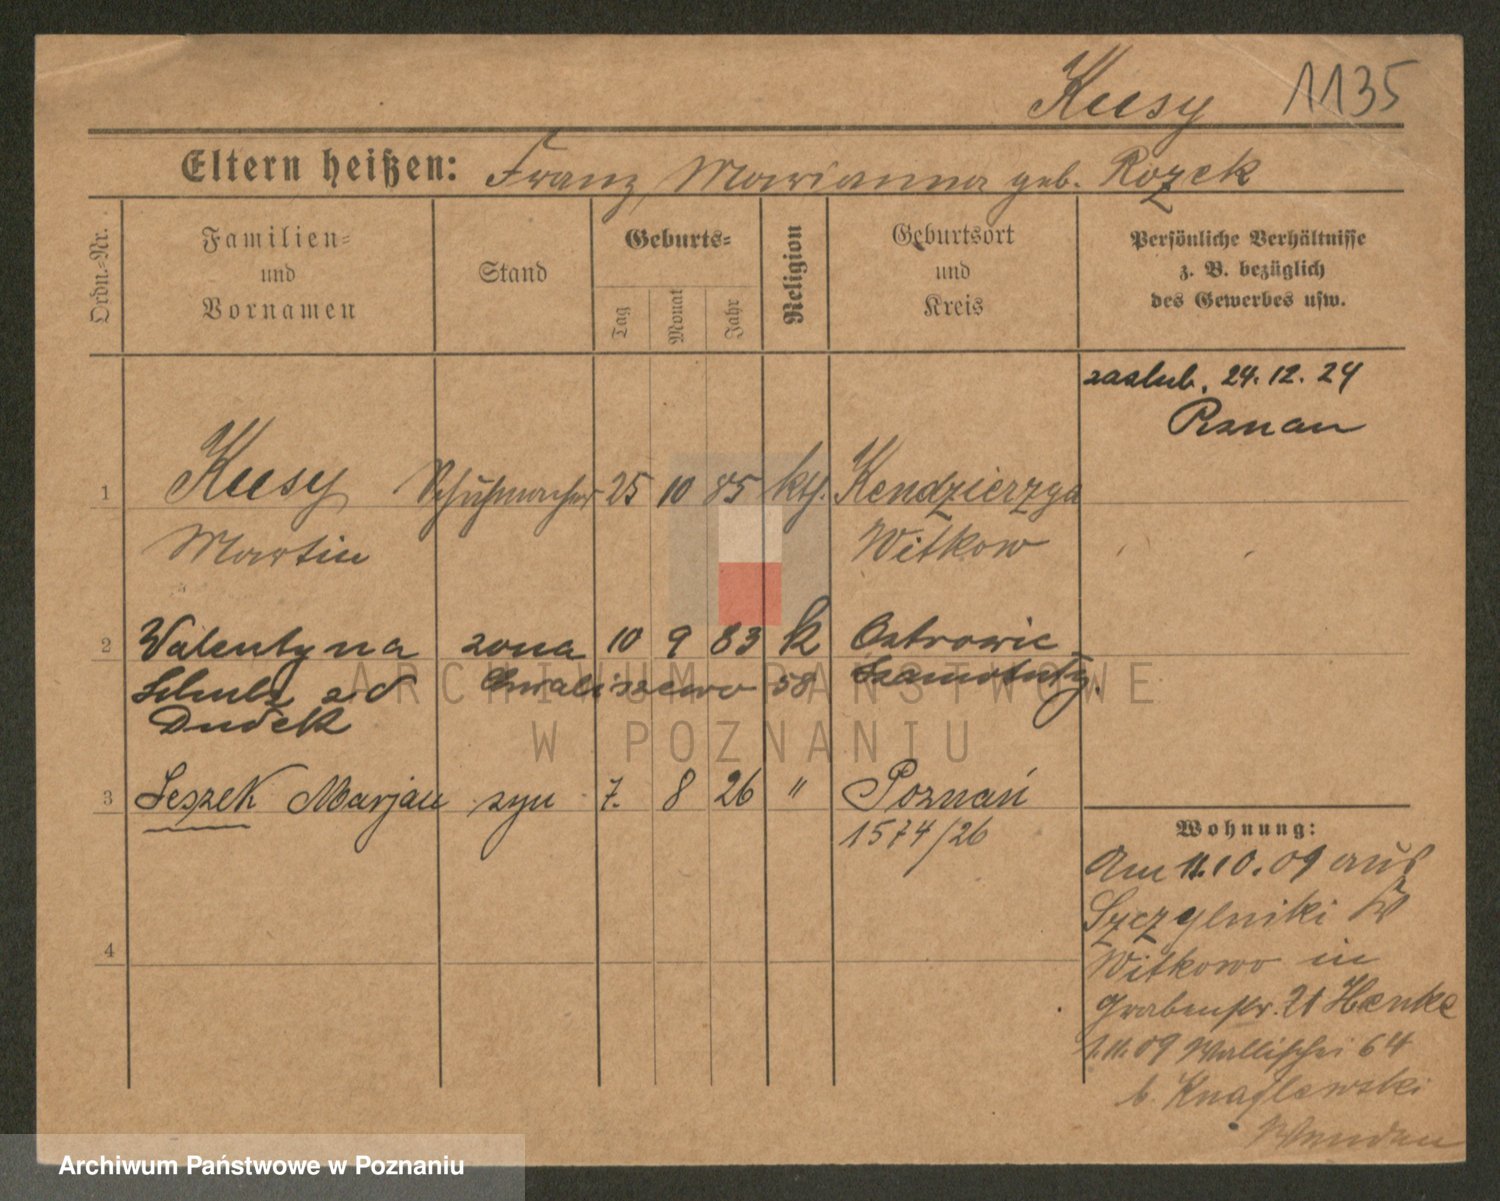 Kusy 1135
Eltern heißen: Franz, Marianna geb. Rozek
Ordn.-Nr.
Familien-
und
Vornamen
Stand
Geburts-
Tag
Monat
Jahr
Religion
Geburtsort
und
Kreis
Persönliche Verhältnisse
z. B. bezüglich
des Gewerbes usw.
zaslub. 24. 12. 24
Poznan
1 Kusy Schuhmacher 25 10 85 kth. Kendzierzyn
Martin Witkow
2 Walentyna zona 10 9 83 k Ostrowie
Schulz z d Chwaliszewo 58 Szamotuły.
Dudek
3 Leszek Marjan syn 7. 8 26 " Poznań
1574/26
4
Wohnung:
Am 11.10.09 aus
Witkowo in
Grabenstr. 21 Henke
1.11.09 Wallischei 64
b.
ARCHIWUM PAŃSTWOWE
W POZNANIU
Archiwum Państwowe w Poznaniu